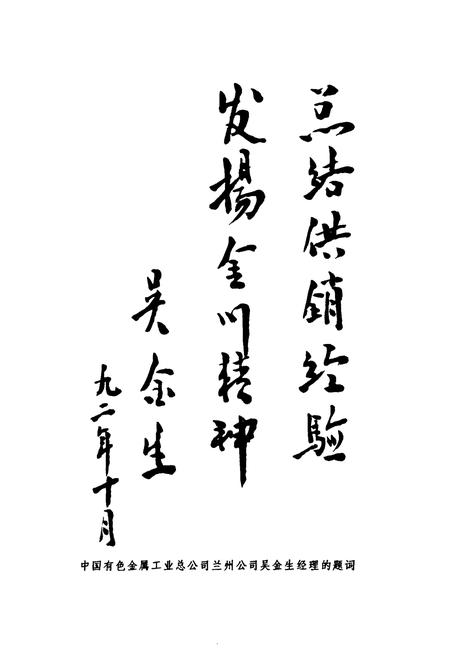 总结供销经验
发揚金川精神
吴金生
九二年十月
中国有色金属工业总公司兰州公司吴金生经理的题词